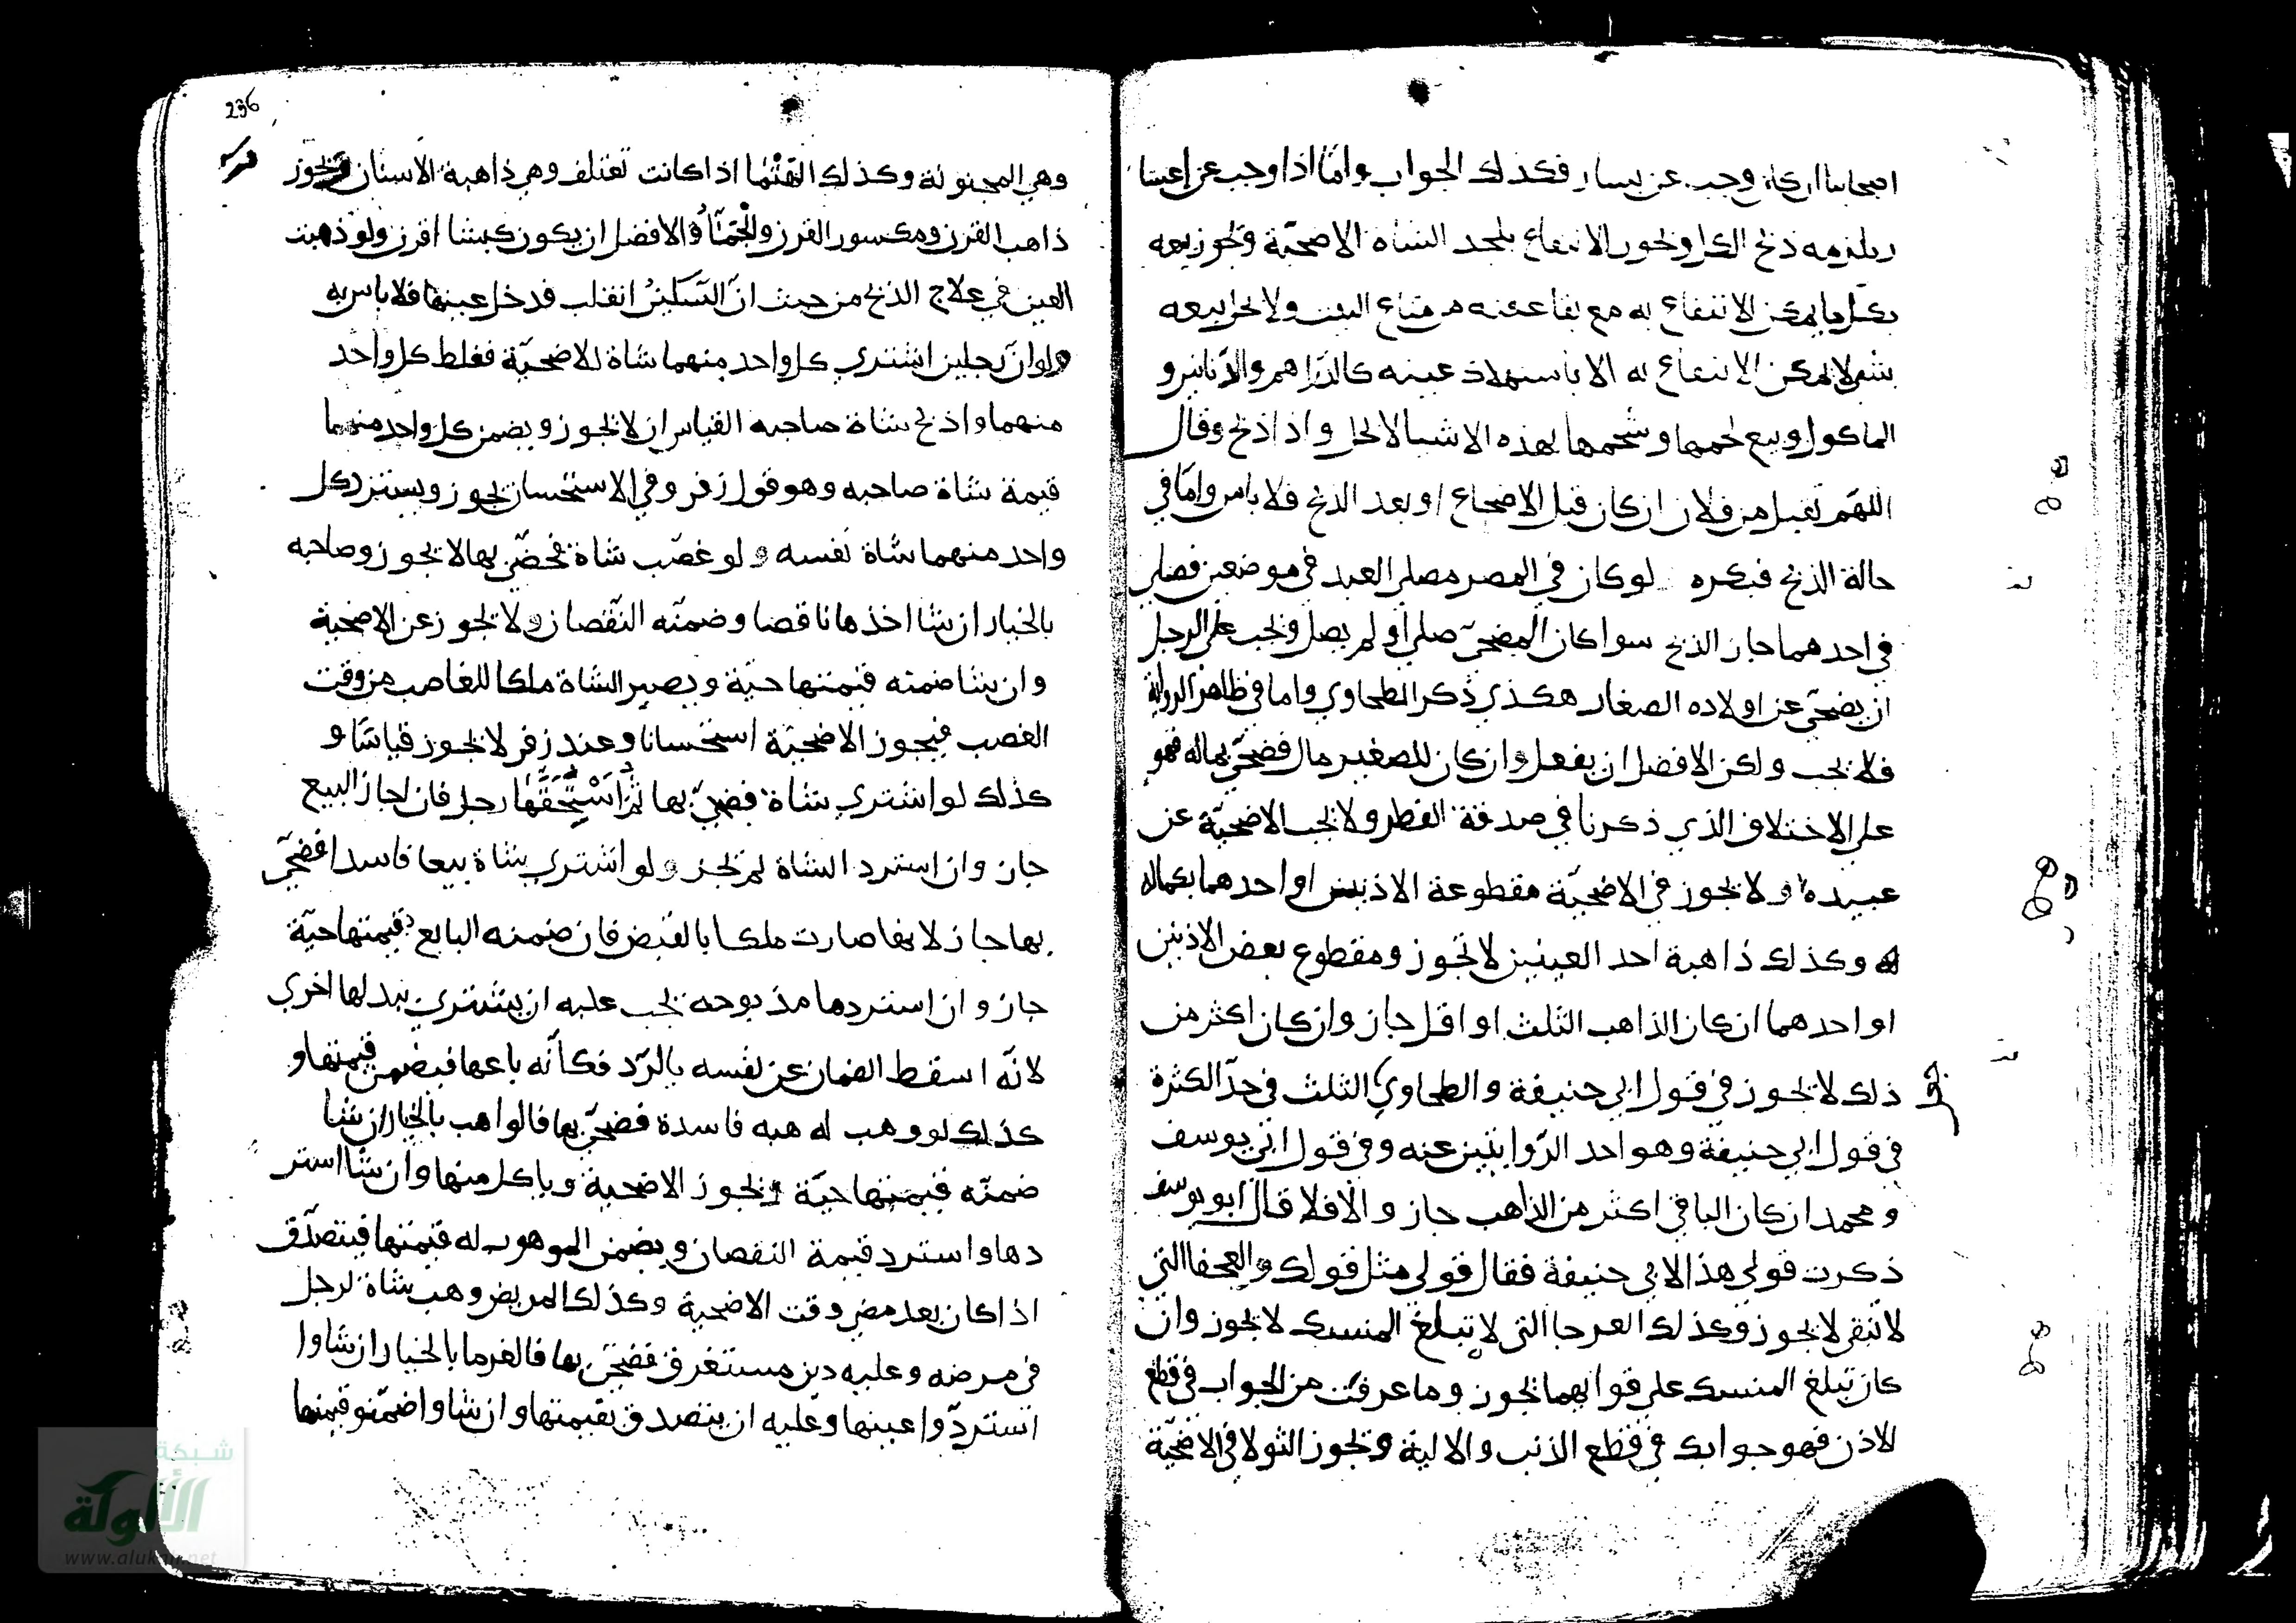 اصحابنا ان كان وجب عن يسار فكذلك الجواب واما اذا وجب عن اعسار
يلزمه ذبح الكل ويجوز الانتفاع بجلد الشاة الاضحيّة ويجوز بيعه
بكل ما يمكن الانتفاع به مع بقاء عينه من متاع البيت ولا يحل بيعه
بشي لا يمكن الانتفاع به الا باستهلاك عينه كالدّراهم والدّنانير و
الماكول وبيع لحمها وشحمها بهذه الاشيا لا يحل واذا ذبح وقال
اللهمّ تقبل من فلان ان كان قبل الاضجاع او بعد الذبح فلا باس وامّا في
حالة الذبح فيكره لو كان في المصر مصلى العيد في موضعين فصلى
في احدهما جاز الذبح سوا كان المضحّي صلى او لم يصل ويجب على الرجل
ان يضحّي عن اولاده الصغار هكذى ذكر الطحاوي واما في ظاهر الرواية
فلا يجب ولكن الافضل ان يفعل وان كان للصغير مال فضحّي بماله فهو
على الاختلاف الذي ذكرنا في صدقة الفطر ولا يجب الاضحيّة عن
عبيده ولا يجوز في الاضحيّة مقطوعة الاذنين او احدهما بكماله
وكذلك ذاهبة احد العينين لا تجوز ومقطوع بعض الاذنين
او احدهما ان كان الذاهب الثلث او اقل جاز وان كان اكثر من
ذلك لا يجوز في قول ابي حنيفة والطحاوي الثلث في حدّ الكثرة
في قول ابي حنيفة وهو احد الرّوايتين عنه وفي قول ابي يوسف
ومحمد ان كان الباقي اكثر من الذاهب جاز والا فلا قال ابو يوسف
ذكرت قولي هذا لابي حنيفة فقال قولي مثل قولك والعجفا التي
لا تنقى لا يجوز وكذلك العرجا التي لا تبلغ المنسك لا يجوز وان
كان تبلغ المنسك على قوايهما يجوز وما عرفت من الجواب في قطع
الاذن فهو جوابك في قطع الذنب والالية ويجوز الثولا في الاضحيّة
236
وهي المجنونة وكذلك الهتما اذا كانت تعتلف وهي ذاهبة الاسنان ويجوز
ذاهب القرن ومكسور القرن والجمّآ والافضل ان يكون كبشا اقرن ولو ذهبت
العين في علاج الذبح من حيث انّ السّكين انقلب فدخل عينها فلا باس به
ولو انّ رجلين اشترى كل واحد منهما شاة للاضحيّة فغلط كل واحد
منهما واذبح شاة صاحبه القياس ان لا يجوز ويضمن كل واحد منهما
قيمة شاة صاحبه وهو قول زفر وفي الاستحسان يجوز ويسترد كل
واحد منهما شاة نفسه ولو غصب شاة فضحّى بها لا يجوز وصاحبه
بالخيار ان شا اخذها ناقصا وضمنّه النّقصان ولا يجوز عن الاضحية
وان شا ضمنه قيمتها حيّة ويصير الشاة ملكا للغاصب من وقت
الغصب فيجوز الاضحيّة استحسانا وعند زفر لا يجوز قياسا و
كذلك لو اشترى شاة فضحّى بها ثمّ استحقّها رجل فان اجاز البيع
جاز وان استرد الشاة لم يجز ولو اشترى شاة بيعا فاسدا فضحّى
بها جاز لانها صارت ملكا بالقبض فان ضمنه البايع قيمتها حيّة
جاز وان استردها مذبوحه يجب عليه ان يشتري بدلها اخرى
لانّه اسقط الضمان عن نفسه بالرّد فكأنّه باعها فيضمن قيمتها و
كذلك لو وهب له هبه فاسدة فضحّى بها فالواهب بالخيار ان شا
ضمنّه قيمتها حيّة ويجوز الاضحية وياكل منها وان شا استر
دها واسترد قيمة النقصان ويضمن الموهوب له قيمتها فيتصدّق
اذا كان بعد مضي وقت الاضحية وكذلك المريض وهب شاة لرجل
في مرضه وعليه دين مستغرق فضحّى بها فالغرما بالخيار ان شاوا
استردّوا عينها وعليه ان يتصدق بقيمتها وان شاوا ضمّنو قيمتها
شبكة
الألوكة
www.alukah.net